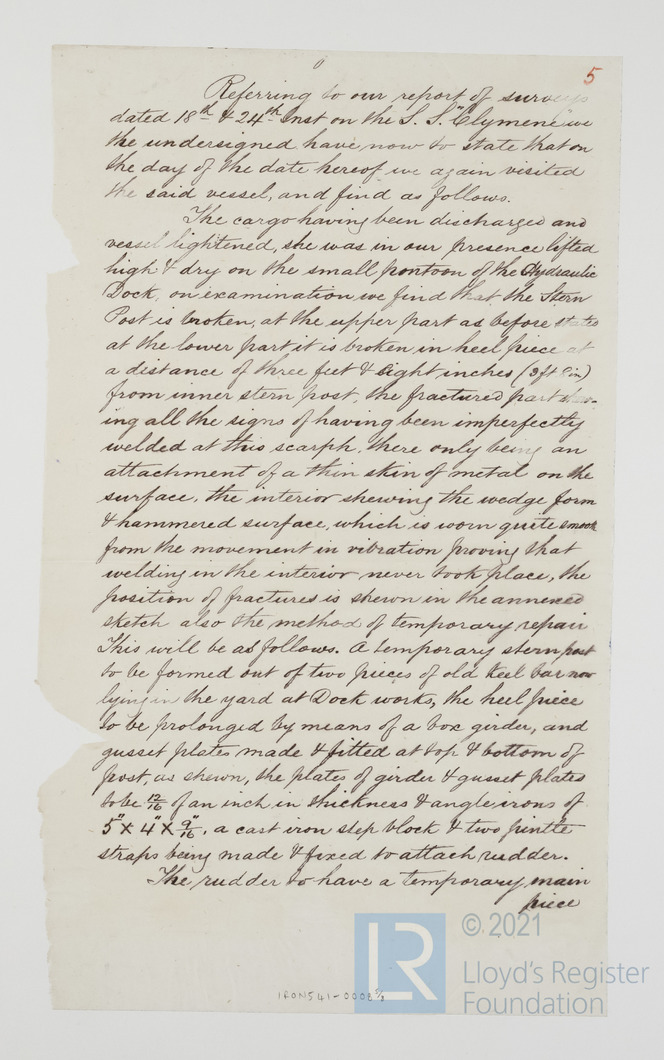 5
Referring to our report of surveys
dated 18th & 24th Inst on the S. S. "Clymene" we
the undersigned have now to state that on
the day of the date hereof we again visited
the said vessel, and find as follows.
The cargo having been discharged and
vessel lightened, she was in our presence lifted
high & dry on the small pontoon of the Hydraulic
Dock, on examination we find that the Stern
Post is broken, at the upper part as before stated
at the lower part it is broken in heel piece at
a distance of three feet & eight inches (3ft 8in)
from inner stern post, the fractured part
ing all the signs of having been imperfectly
welded at this scarph, there only being an
attachment of a thin skin of metal on the
surface, the interior shewing the wedge form
& hammered surface, which is worn quite smooth
from the movement in vibration proving that
welding in the interior never took place, the
position of fractures is shewn in the annexed
sketch also the method of temporary repair
This will be as follows. A temporary stern post
to be formed out of two pieces of old keel bar now
lying in the yard at Dock works, the heel piece
to be prolonged by means of a box girder, and
gusset plates made & fitted at top & bottom of
post, as shewn, the plates of girder & gusset plates
to be 12/16 of an inch in thickness & angle irons of
5" X 4" X 9/16", a cast iron step block & two pintle
straps being made & fixed to attach rudder.
The rudder to have a temporary main
piece
© 2021
LR
Lloyd's Register
Foundation
IRON541-0008 5/8